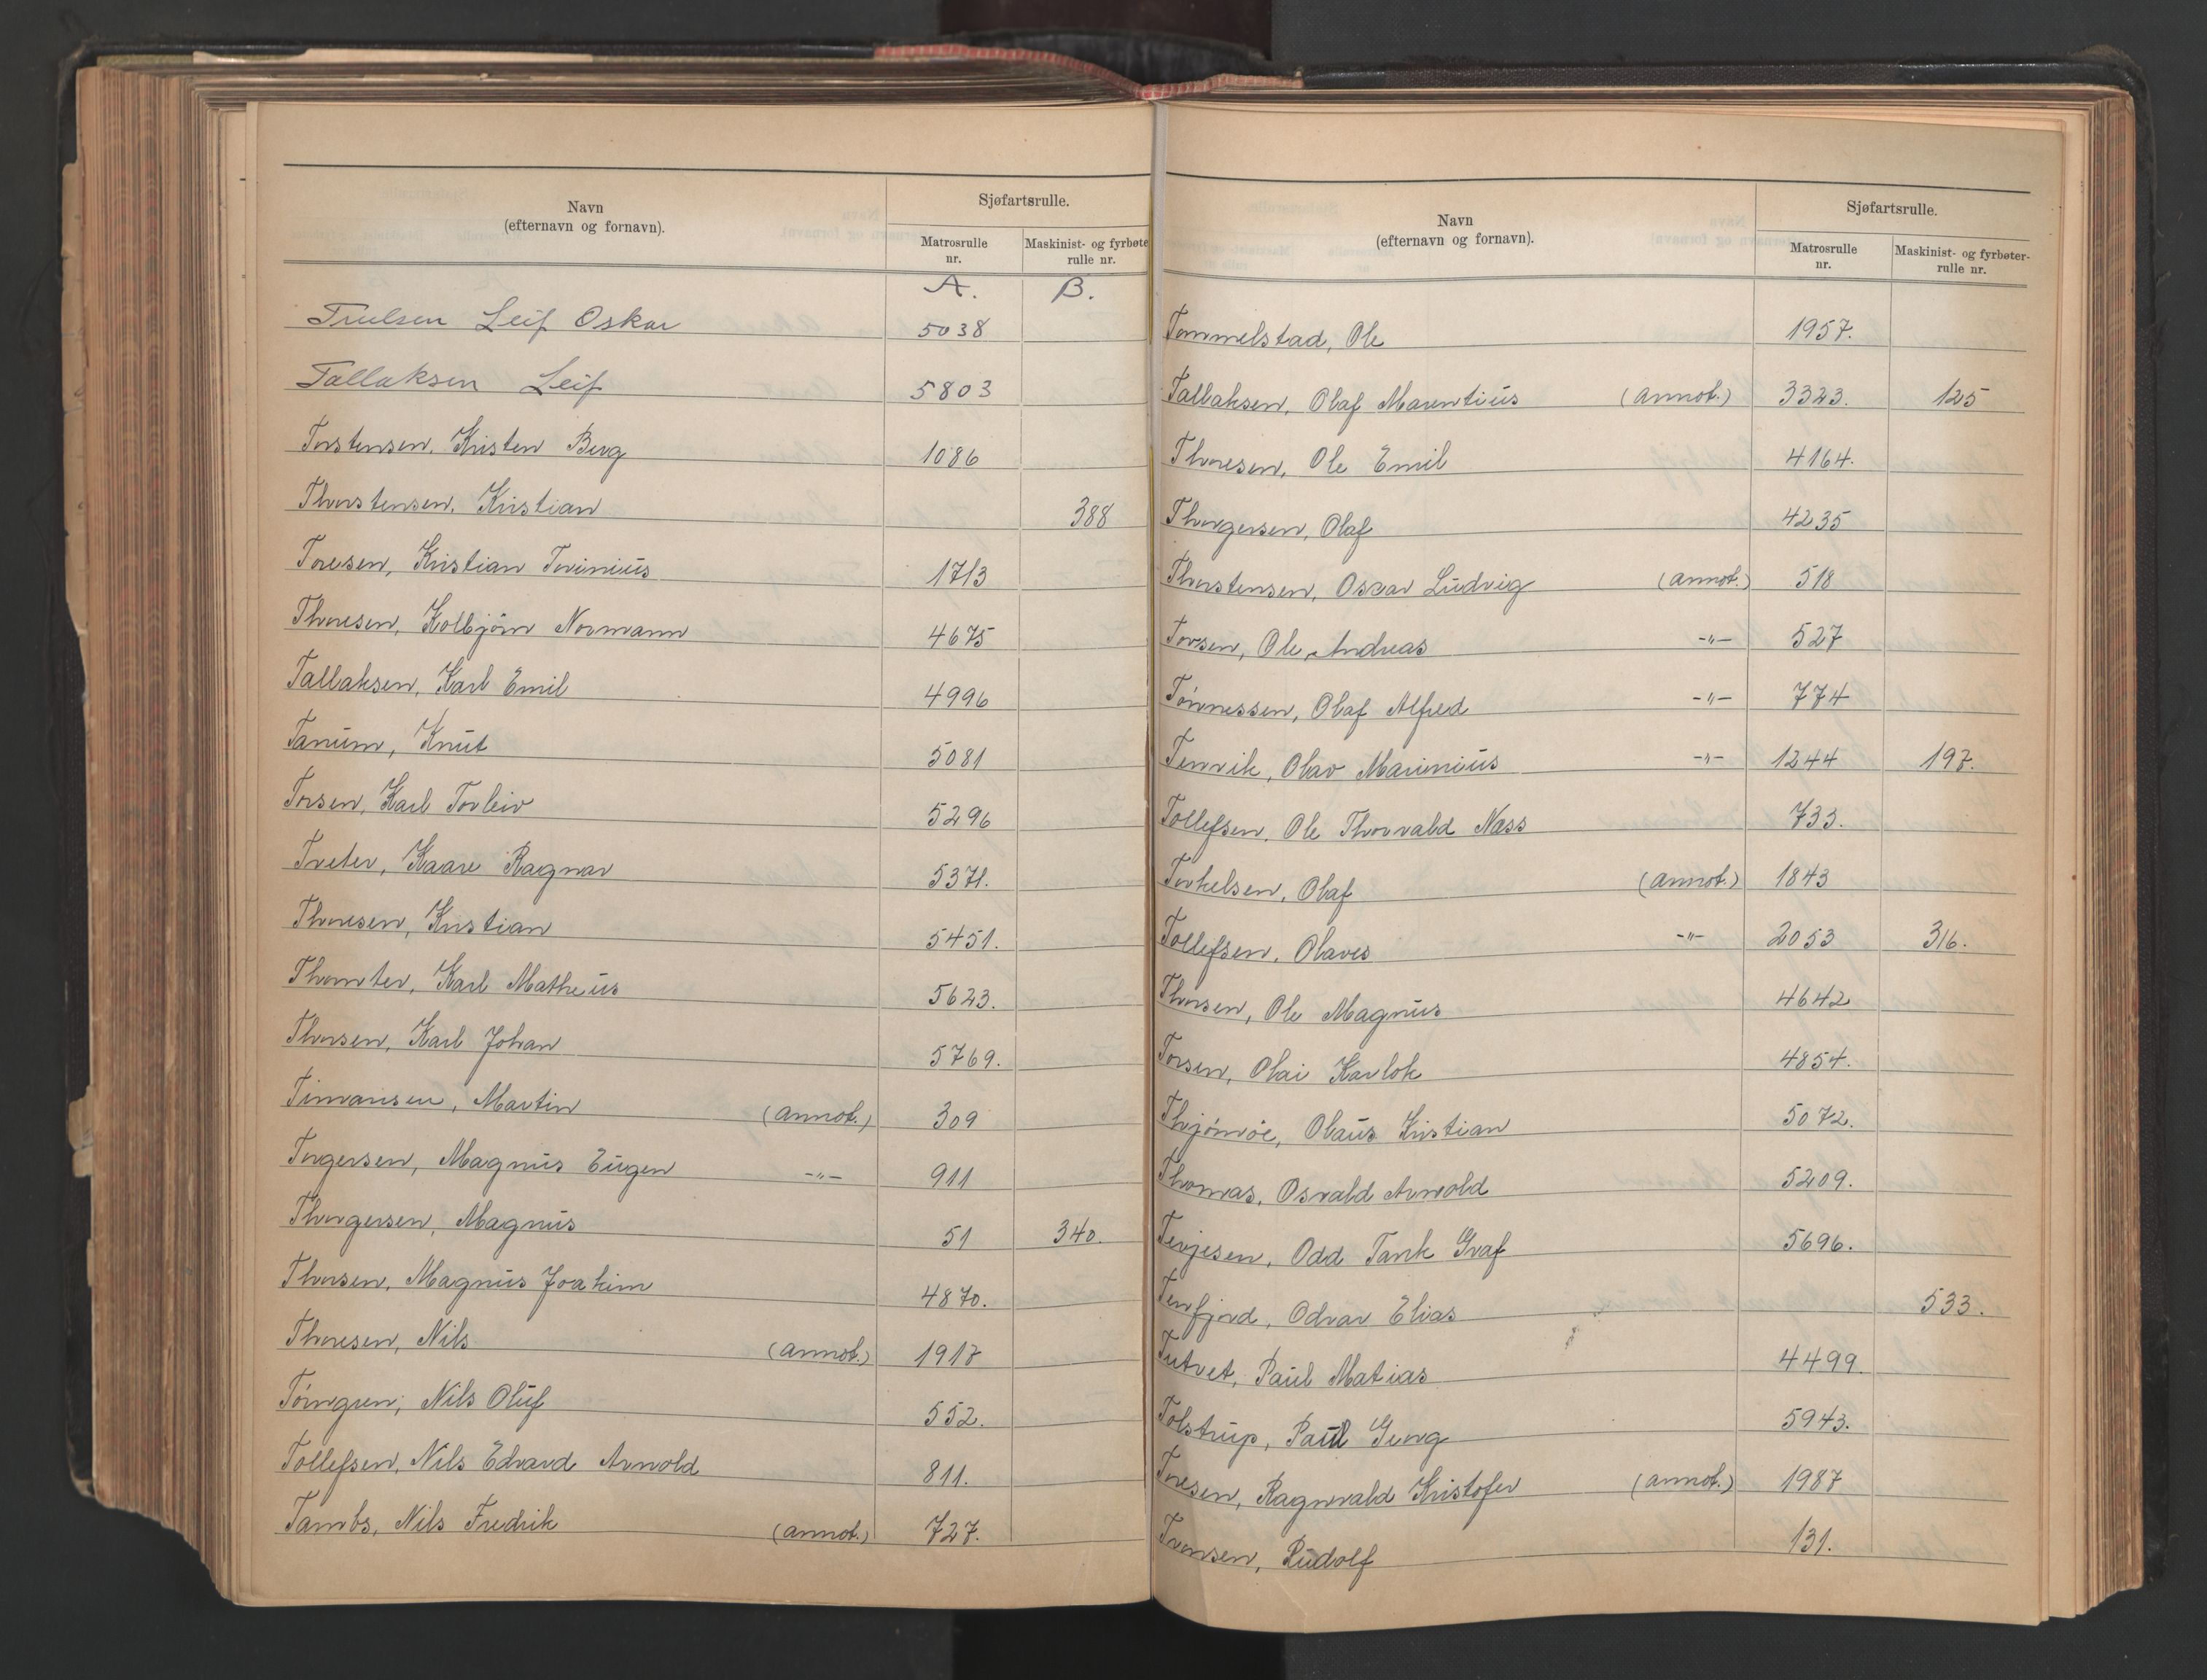 Navn
(efternavn og fornavn).
Sjøfartsrulle.
Matrosrulle nr.
Maskinist- og fyrbøte
rulle nr.
A. B.
Truelsen Leif Oskar 5038
Tallaksen Leif 5803
Torstensen, Kristen Berg 1086
Thorstensen, Kristian 388
Toresen, Kristian Torinius 1713
Thoresen, Kolbjörn Normann 4675
Tallaksen, Karl Emil 4996
Tanum, Knut 5081
Torsen, Karl Torleiv 5296
Tveter, Kaare Ragnar 5371.
Thoresen, Kristian 5451.
Thomter, Karl Matheus 5623.
Thorsen, Karl Johan 5769.
Timansen, Martin (annot.) 309
Torgersen, Magnus Eugen -"- 911
Thorgersen, Magnus 51 340.
Thorsen, Magnus Joakim 4870.
Thoresen, Nils (annot.) 1917
Törngren, Nils Oluf 552.
Tollefsen, Nils Edvard Arnold 811.
Tambs, Nils Fredrik (annot.) 727.
Navn
(efternavn og fornavn).
Sjøfartsrulle.
Matrosrulle nr.
Maskinist- og fyrbøter-
rulle nr.
Tommelstad, Ole 1957.
Tallaksen, Olaf Marentius (annot.) 3323. 125
Thoresen, Ole Emil 4164.
Thorgersen, Olaf 4235
Thorstensen, Oscar Ludvig (annot.) 518
Torsen, Ole Andreas -"- 527
Tönnessen, Olaf Alfred -"- 774
Tenvik, Olav Marinius -"- 1244 197.
Tollefsen, Ole Thorvald Næss 733.
Torkelsen, Olaf (annot.) 1843
Tollefsen, Olaves -"- 2053 316.
Thorsen, Ole Magnus 4642
Torsen, Olai Karlok 4854.
Thjömöe, Olaus Kristian 5072.
Thomas, Osvald Arnold 5209.
Terjesen, Odd Tank Graf 5696.
Tenfjord, Odvar Elias 533.
Tutvet, Paul Matias 4499.
Tolstrup, Paul Georg 5943.
Toresen, Ragnvald Kristofer (annot.) 1987
Tronsen, Rudolf 131.